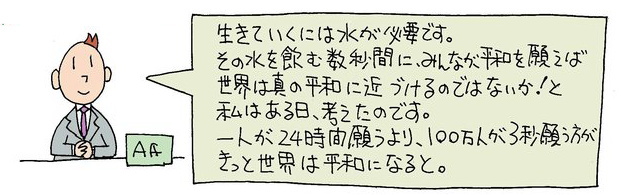 生きていくには水が必要です。
その水を飲む数秒間に、みんなが平和を願えば
世界は真の平和に近づけるのではないか!と
私はある日、考えたのです。
一人が24時間願うより、100万人が3秒願う方が
きっと世界は平和になると。